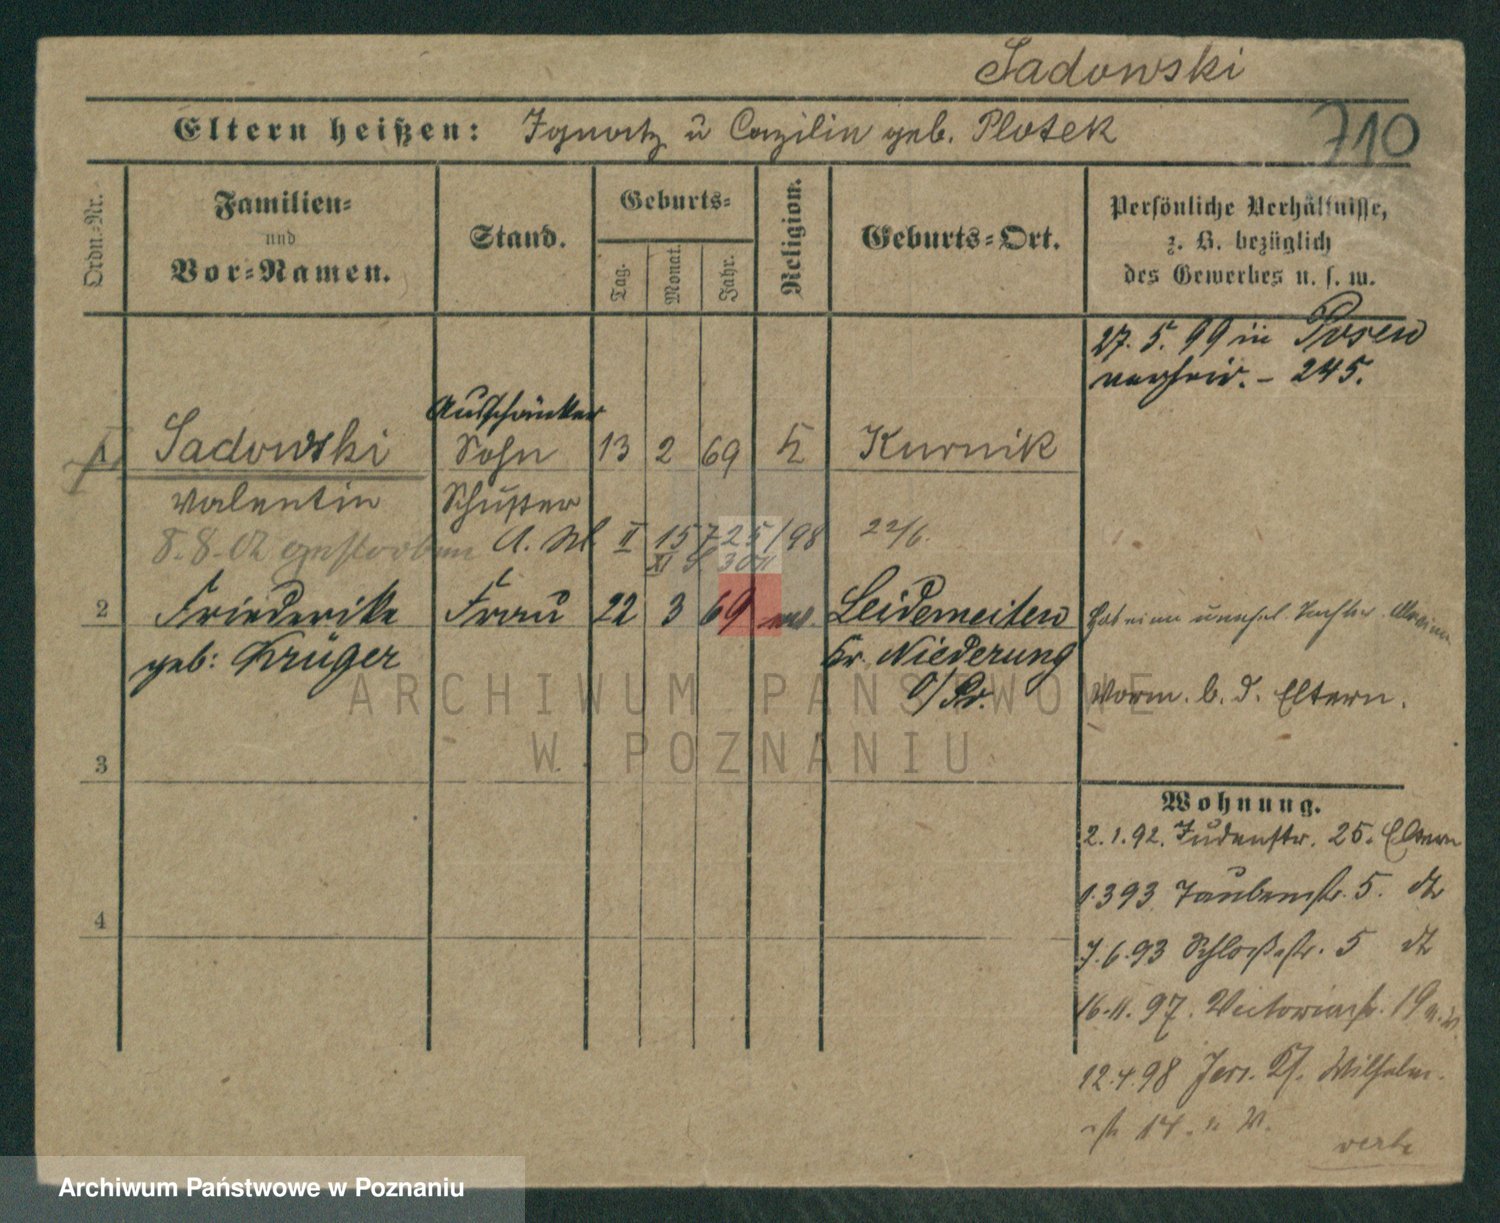 Sadowski
Eltern heißen: Ignatz ü Cäzilin geb. Plotek
710
Ordn.-Nr.
Familien-
und
Vor-Namen.
Stand.
Geburts-
Tag.
Monat.
Jahr.
Religion.
Geburts-Ort.
Persönliche Verhältnisse,
z. B. bezüglich
des Gewerbes u. s. w.
27. 5. 99 in Posen
verheir. - 245.
Ausschänker
1 Sadowski Sohn 13 2 69 k Kurnik
Valentin Schuster
8. 8. 02 gestorben II 15 /98 22/6.
XI
2 Friederike Frau 22 3 69 Leidemeiten
geb: Krüger Kr. Niederung
O/Pr.
Hat eine unehel. Tochter
Vorm. b. d. Eltern.
3
4
Wohnung.
2.1.92. Judenstr. 25. Eltern
1.3 93 Taubenstr. 5. dto
7.6.93 Schloßstr. 5 dto
16.11.97. Victoriastr. 19
12.4.98 Jers. Wilhelm-
str 14.
ARCHIWUM PAŃSTWOWE
W POZNANIU
Archiwum Państwowe w Poznaniu